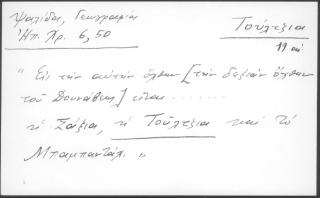 Ψαλίδα, Γεωγραφία
Ἠπ. Χρ. 6, 50
Τούλτζια
19 αἰ
" Εἰς τὴν αὐτὴν ὄχθην [τὴν δεξιὰν ὄχθην
τοῦ Δουνάβεως] εἶναι .......
ἡ Σάξια, ἡ Τούλτζια καὶ τὸ
Μπαμπαντάγι. "